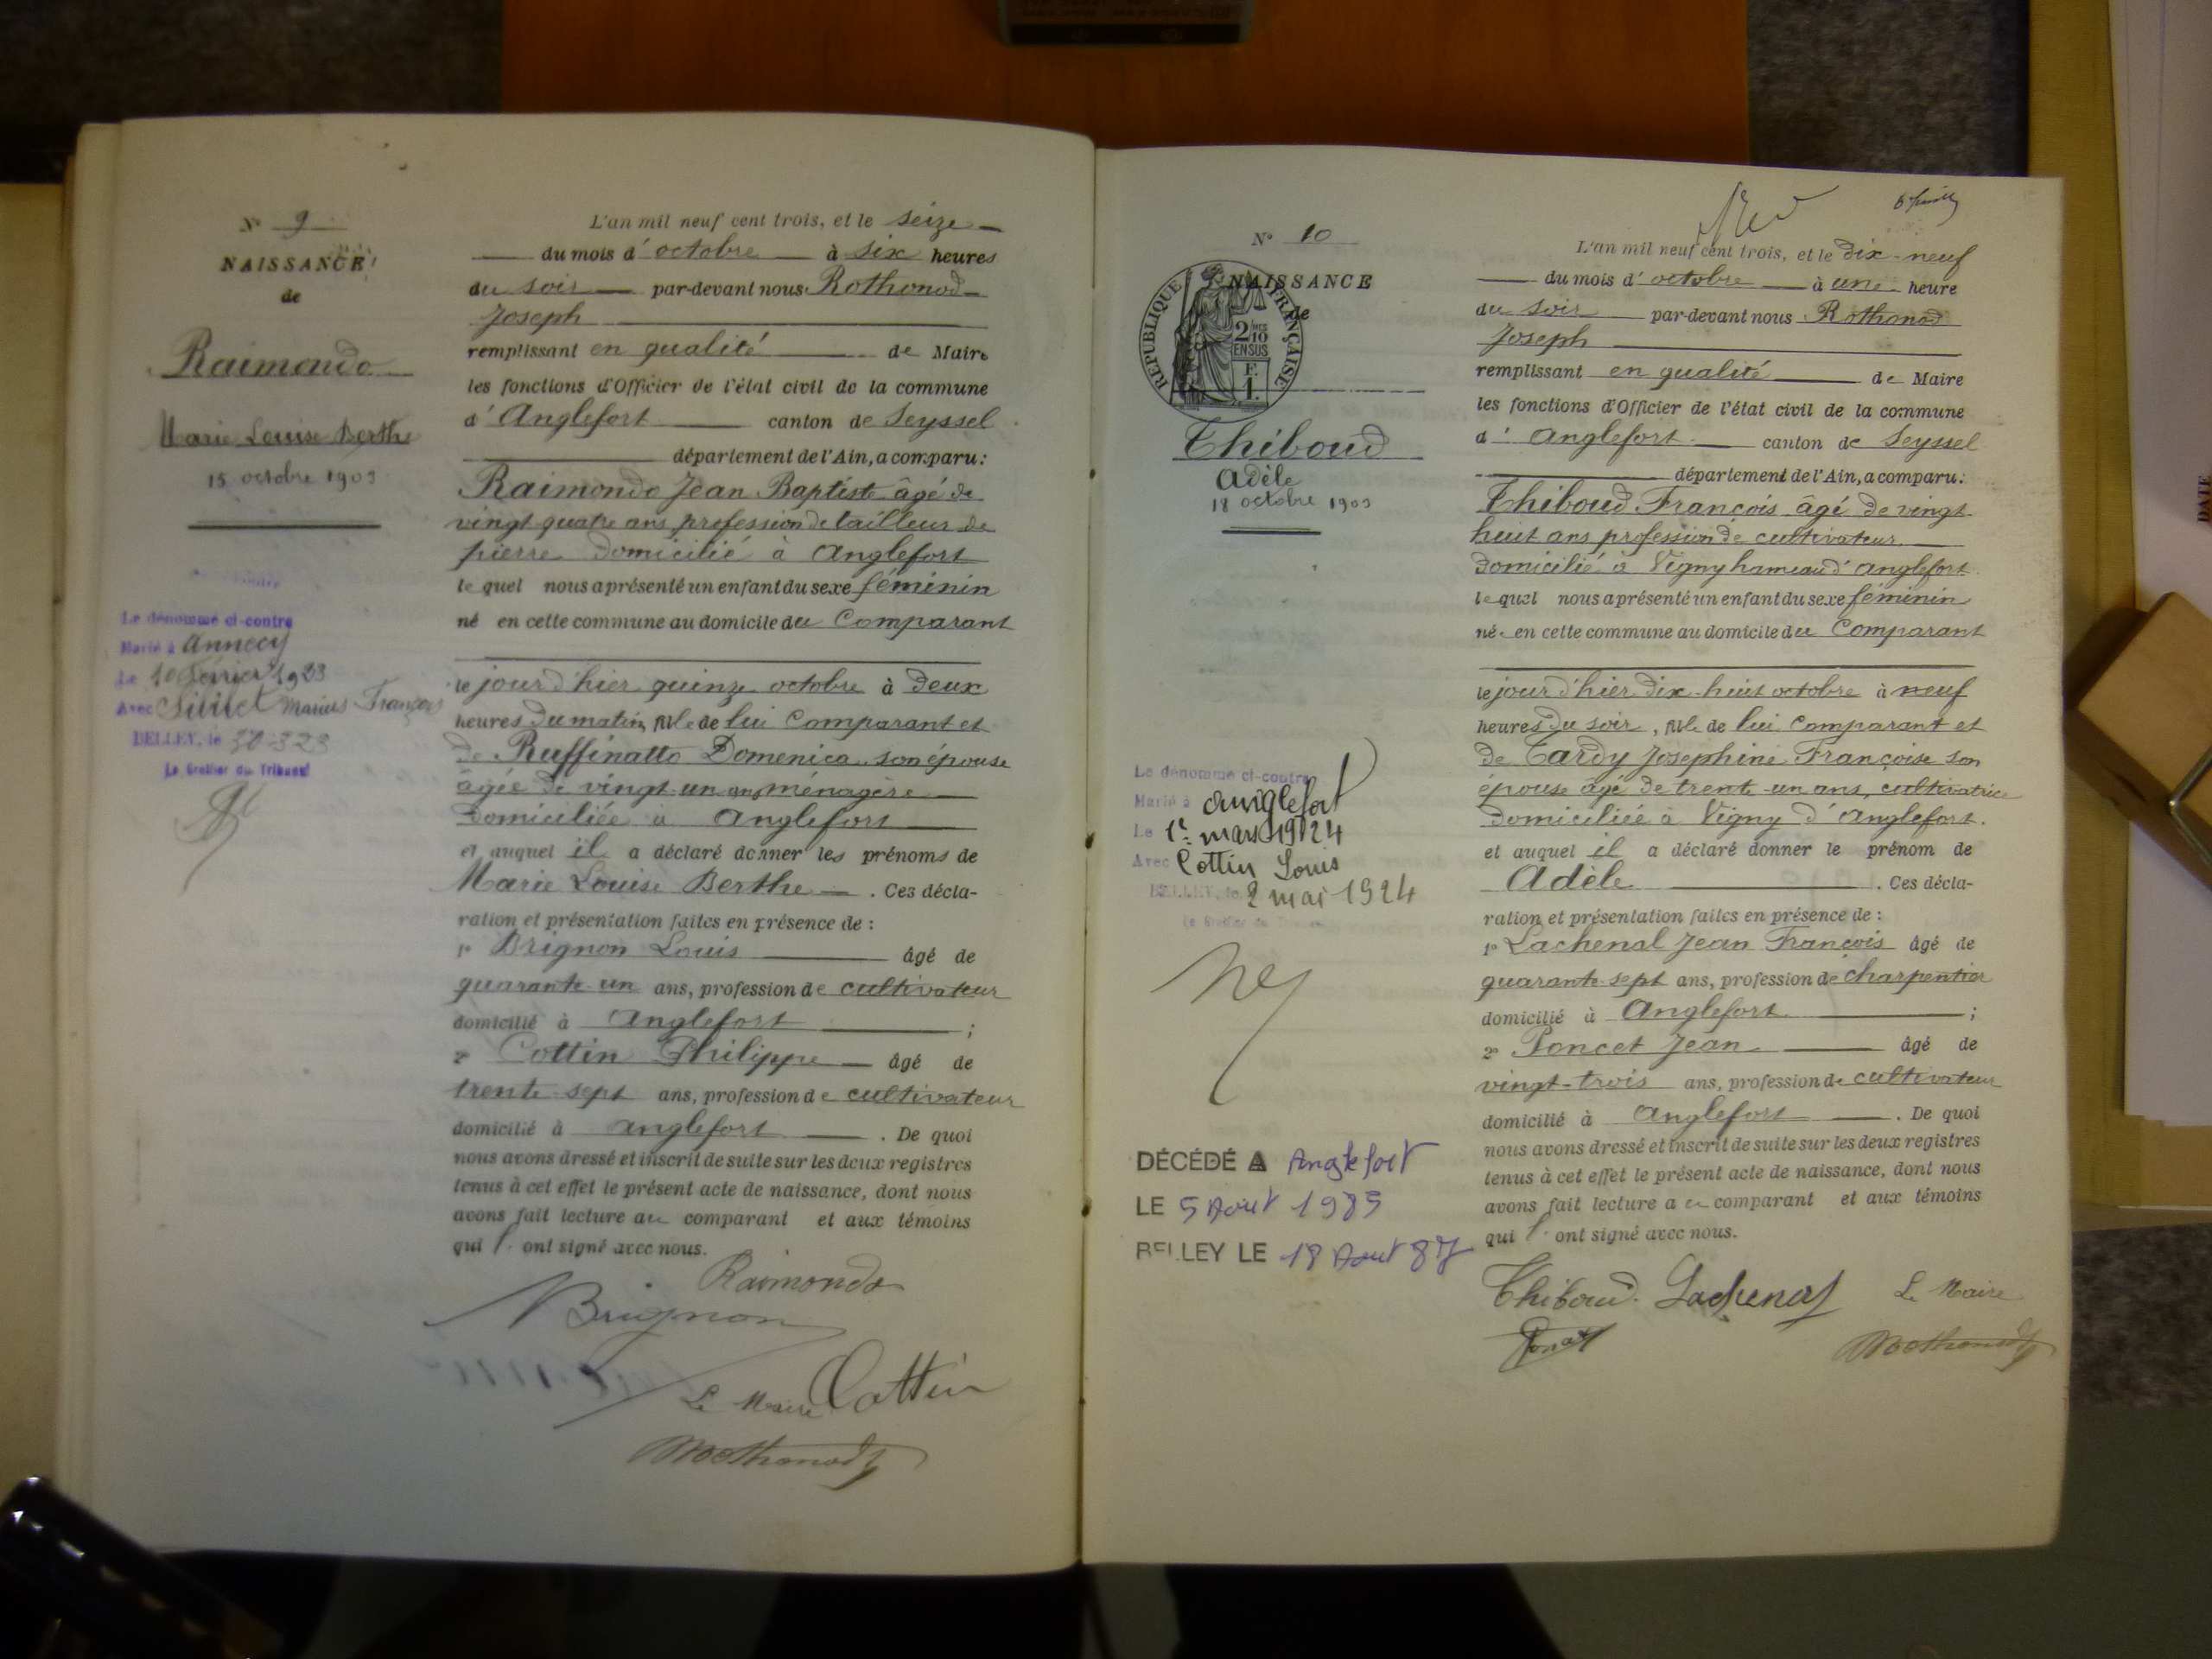 N° 9
NAISSANCE
de
Raimondo
Marie Louise Berthe
15 octobre 1903
Le dénommé ci-contre
Marié à Annecy
Le 10 février 1923
Avec Marius François
BELLEY, le 30-3-23
Le Greffier du Tribunal
L'an mil neuf cent trois, et le seize
du mois d'octobre à six heures
du soir par-devant nous Rothonod
Joseph
remplissant en qualité de Maire
les fonctions d'Officier de l'état civil de la commune
d'Anglefort canton de Seyssel
département de l'Ain, a comparu:
Raimondo Jean Baptiste âgé de
vingt quatre ans profession de tailleur de
pierre domicilié à Anglefort
lequel nous a présenté un enfant du sexe féminin
né en cette commune au domicile du Comparant
le jour d'hier quinze octobre à deux
heures du matin, fille de lui Comparant et
de Ruffinatto Domenica son épouse
âgée de vingt-un ans ménagère
domiciliée à Anglefort
et auquel il a déclaré donner les prénoms de
Marie Louise Berthe. Ces décla-
ration et présentation faites en présence de :
1° Brignon Louis âgé de
quarante-un ans, profession de cultivateur
domicilié à Anglefort ;
2° Cottin Philippe âgé de
trente-sept ans, profession de cultivateur
domicilié à Anglefort. De quoi
nous avons dressé et inscrit de suite sur les deux registres
tenus à cet effet le présent acte de naissance, dont nous
avons fait lecture au comparant et aux témoins
qui l'ont signé avec nous.
Raimondo
Brignon
Le Maire Cottin
Rothonod
N° 10
NAISSANCE
de
RÉPUBLIQUE FRANÇAISE
2/10
EN SUS
F.
1.
Thiboud
Adèle
18 octobre 1903
Le dénommé ci-contre
Marié à Anglefort
Le 1er mars 1924
Avec Cottin Louis
BELLEY, le 2 mai 1924
Le Greffier du Tribunal
DÉCÉDÉ A Anglefort
LE 5 Aout 1985
BELLEY LE 18 Aout
L'an mil neuf cent trois, et le dix-neuf
du mois d'octobre à une heure
du soir par-devant nous Rothonod
Joseph
remplissant en qualité de Maire
les fonctions d'Officier de l'état civil de la commune
d'Anglefort canton de Seyssel
département de l'Ain, a comparu:
Thiboud François âgé de vingt
huit ans profession de cultivateur
domicilié à Vigny hameau d'Anglefort
lequel nous a présenté un enfant du sexe féminin
né en cette commune au domicile du Comparant
le jour d'hier dix-huit octobre à neuf
heures du soir, fille de lui Comparant et
de Tardy Josephine Françoise son
épouse âgé de trente-un ans, cultivatrice
domiciliée à Vigny d'Anglefort.
et auquel il a déclaré donner le prénom de
Adèle. Ces décla-
ration et présentation faites en présence de :
1° Lachenal Jean François âgé de
quarante-sept ans, profession de charpentier
domicilié à Anglefort ;
2° Poncet Jean âgé de
vingt-trois ans, profession de cultivateur
domicilié à Anglefort. De quoi
nous avons dressé et inscrit de suite sur les deux registres
tenus à cet effet le présent acte de naissance, dont nous
avons fait lecture au comparant et aux témoins
qui l'ont signé avec nous.
Thiboud Lachenal Le Maire
Poncet Rothonod
DATE